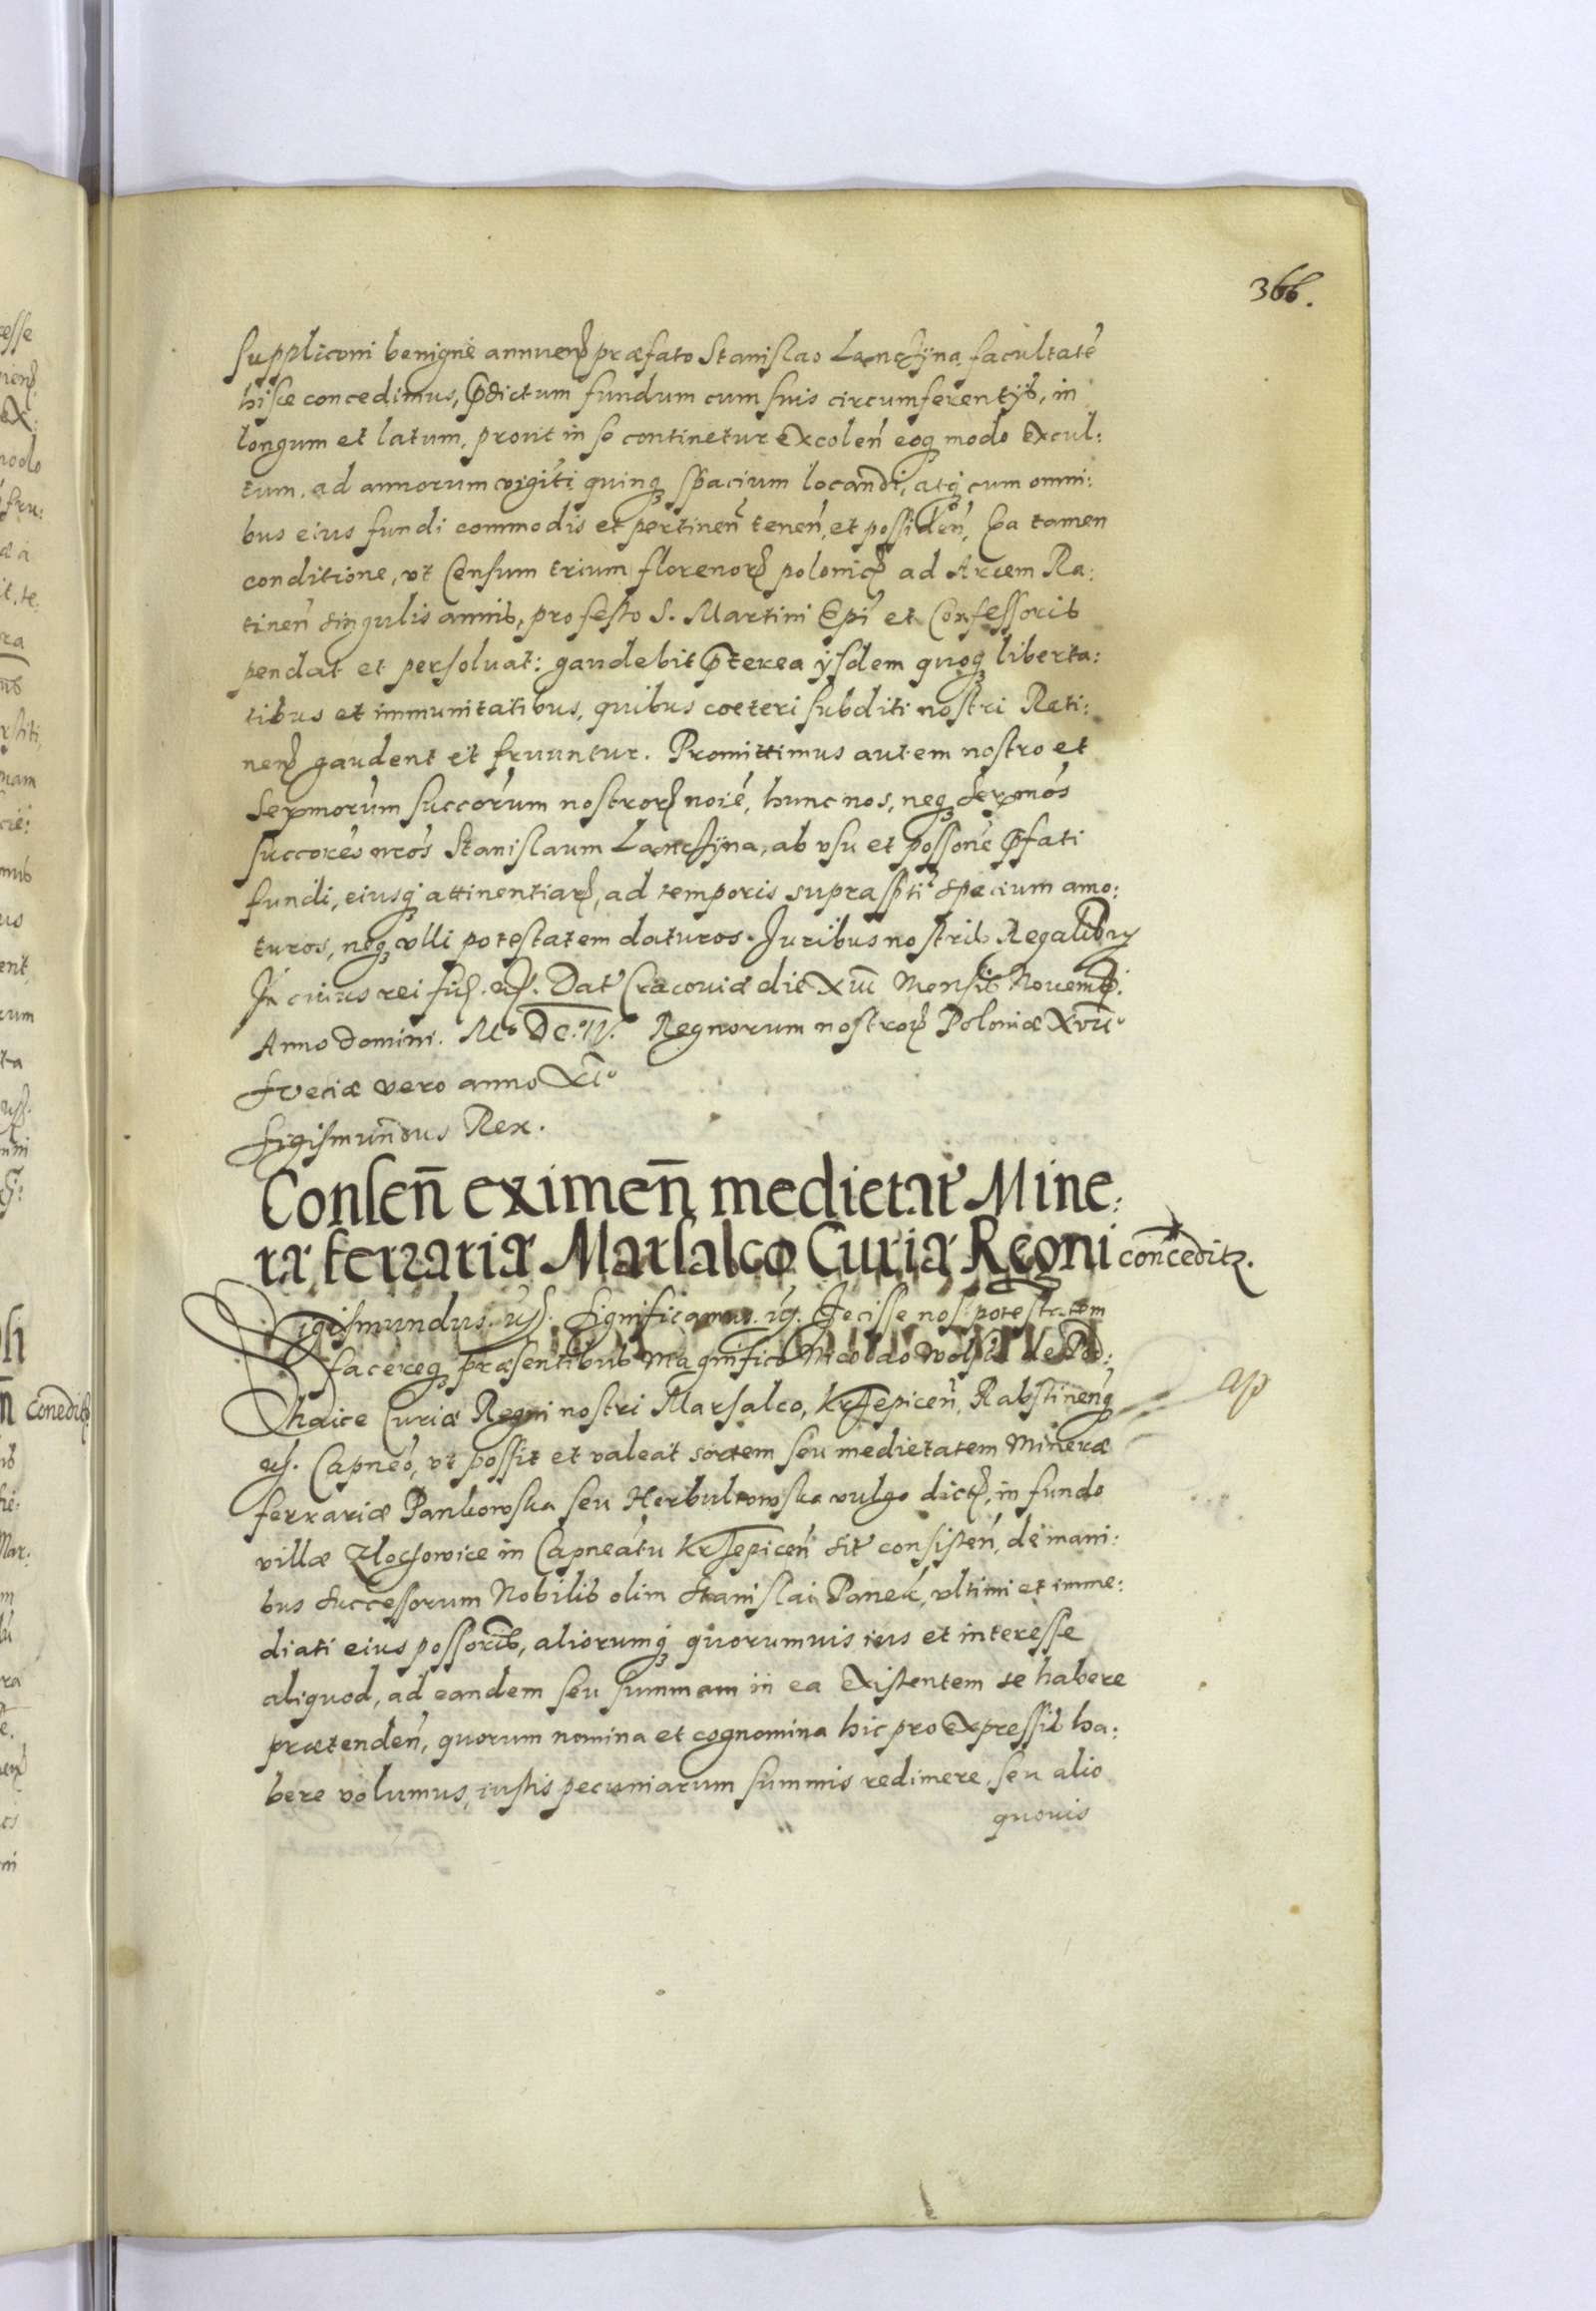 366.
suppliconi benignè annuen præfato Stanislao facultatē
hisce concedimus, p̄dictum fundum cum suis circumferentijs, in
longum et latum, prout in se continetur excolen̄ eoq modo excul:
tum, ad annorum vigīti quinq spacium locandi, atq cum omni:
bus eius fundi commodis et pertinen̄ tenen̄, et possiden̄, Ea tamen
conditione, vt Censum trium florenor polonic ad Arcem Ra:
tinen̄ singulis annis, pro festo S. Martini Epi et Confessoris
pendat et persoluat: gaudebit p̄terea ijsdem quoq liberta:
tibus et immunitatibus, quibus cæteri subditi nostri Rati:
nen gaudent et fruuntur. Promittimus autem nostro et
Sermorum succorum nostror noiē, hunc nos, neq sermos
succores nros Stanislaum ab vsu et possone p̄fati
fundi, eiusq attinentiar, ad temporis suprasp̄ti spacium amo:
turos, neq vlli potestatem daturos. Juribus nostris Regalibus
In cuius rei Dat Cracouiæ die Mensis Nouemb:
Anno domini. Mo Dc. IV. Regnorum nostror Poloniæ
Sveciæ vero anno XIo
Sigismundus Rex.
Consen̄ eximen̄ medietat Mine:
ræ ferrariæ Marsalco Curiæ Regni conceditr.
Sigismundus. Significamus. Fecisse nos potestatem
facereq præsentibus Magnifico Nicolao Wolski de Pod:
haice Curiæ Regni nostri Marsalco, Krzepicen̄, Rabstinenq
Capneo, vt possit et valeat sortem seu medietatem Mineræ
ferrariæ Pankowska seu Herbultowska vulgo dict, in fundo
villæ Zlochowice in Capneatu Krzepicen̄ sit consisten̄, de mani:
bus Successorum Nobilis olim Stanislai Panek, vltimi et imme:
diati eius possoris, aliorumq quorumuis ius et interesse
aliquod, ad eandem seu summam in ea Existentem se habere
prætenden̄, quorum nomina et cognomina hic pro Expressis ha:
bere volumus, iustis pecuniarum summis redimere, seu alio
quouis